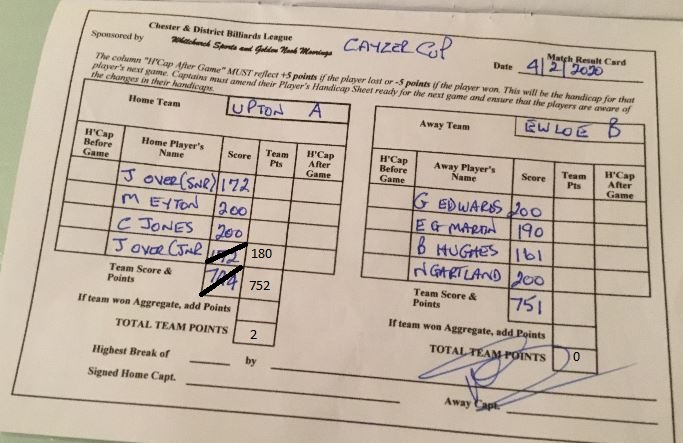 Chester & District Billiards League
Sponsored by Whitchurch Sports and Golden Nook Moorings
CAYZER CUP
Match Result Card
Date 4/2/2020
The column "H'Cap After Game" MUST reflect +5 points if the player lost or -5 points if the player won. This will be the handicap for that
player's next game. Captains must amend their Player's Handicap Sheet ready for the next game and ensure that the players are aware of
the changes in their handicaps.
Home Team UPTON A
H'Cap Before Game Home Player's Name Score Team Pts H'Cap After Game
J OVER (SNR) 172
M EYTON 200
C JONES 200
J OVER (JNR 180
Team Score & Points 752
If team won Aggregate, add Points
TOTAL TEAM POINTS 2
Highest Break of by
Signed Home Capt.
Away Team EWLOE B
H'Cap Before Game Away Player's Name Score Team Pts H'Cap After Game
G EDWARDS 200
E G MARTIN 190
B HUGHES 161
N GARTLAND 200
Team Score & Points 751
If team won Aggregate, add Points
TOTAL TEAM POINTS 0
Away Capt.